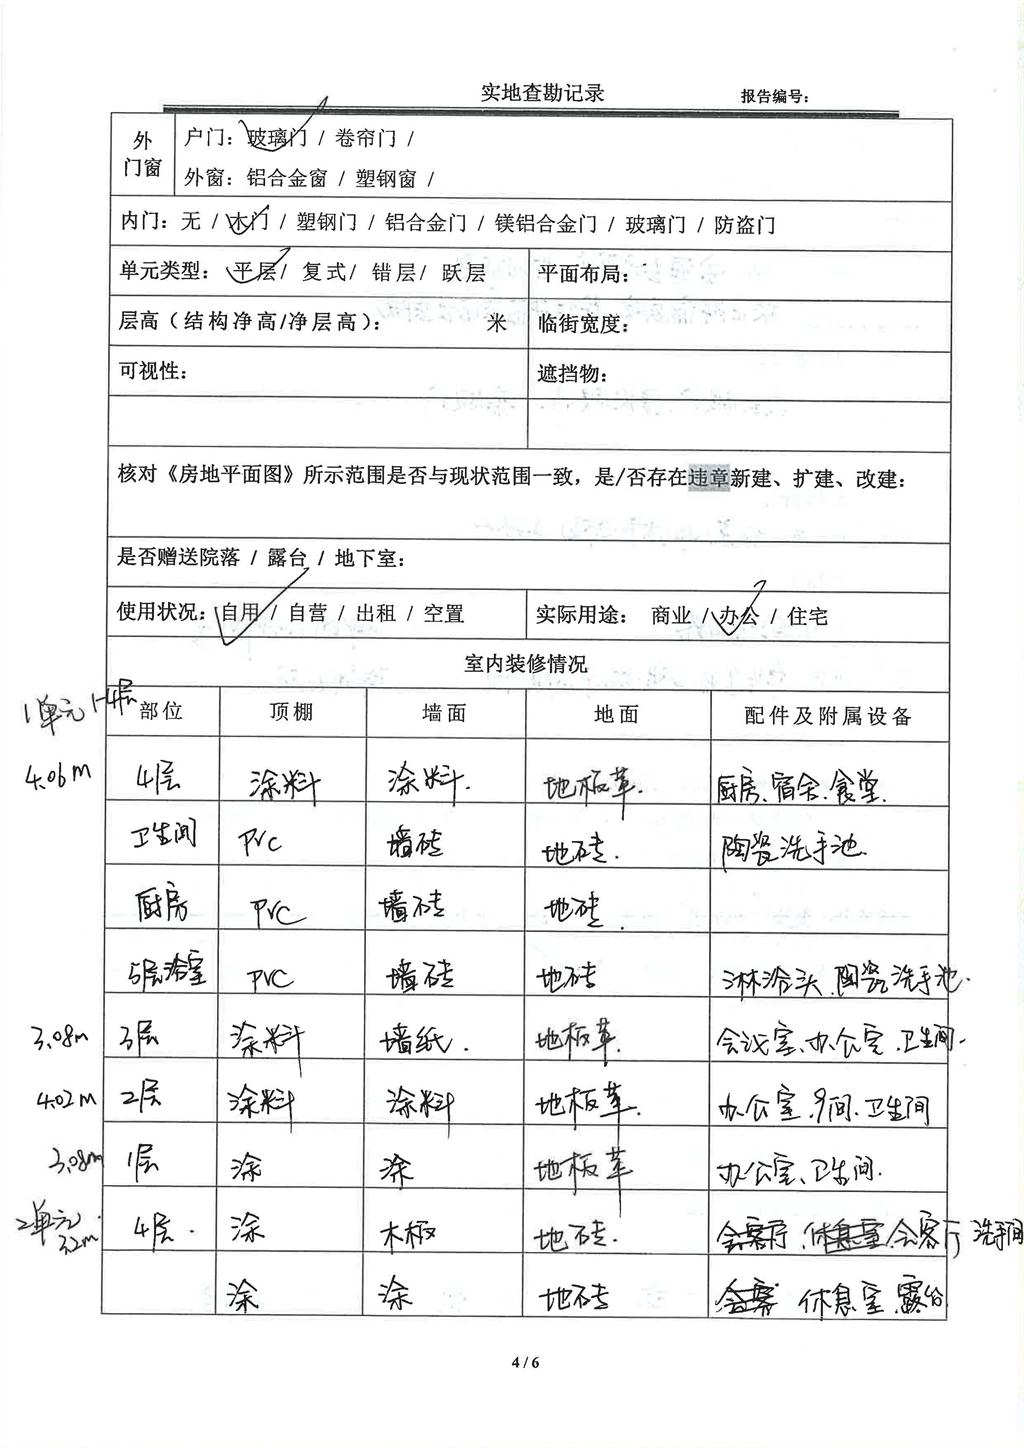 实地查勘记录 报告编号：
外门窗
户门：玻璃门 / 卷帘门 /
外窗：铝合金窗 / 塑钢窗 /
内门：无 / 木门 / 塑钢门 / 铝合金门 / 镁铝合金门 / 玻璃门 / 防盗门
单元类型：平层 / 复式 / 错层 / 跃层 平面布局：
层高（结构净高/净层高）： 米 临街宽度：
可视性： 遮挡物：
核对《房地平面图》所示范围是否与现状范围一致，是/否存在违章新建、扩建、改建：
是否赠送院落 / 露台 / 地下室：
使用状况：自用 / 自营 / 出租 / 空置 实际用途： 商业 / 办公 / 住宅
室内装修情况
1单元 1-4层 部位 顶棚 墙面 地面 配件及附属设备
4.06m 4层 涂料 涂料. 地板革. 厨房、宿舍、食堂.
卫生间 PVC 墙砖 地砖. 陶瓷洗手池.
厨房 PVC 墙砖 地砖.
5层浴室 PVC 墙砖 地砖 淋浴头、陶瓷洗手池.
3.08m 3层 涂料 墙纸. 地板革. 会议室、办公室、卫生间.
4.02m 2层 涂料 涂料 地板革. 办公室、 卫生间
3.08m 1层 涂 涂 地板革 办公室、卫生间.
2单元 3.2m 4层. 涂 木板 地砖. 会客厅、休息室、会客厅 洗手间
涂 涂 地砖 会客 休息室、露台
4 / 6